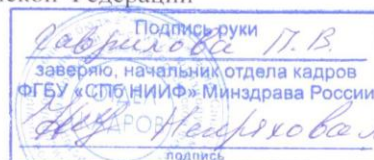 ской Федерации
Подпись руки
Гаврилова П.В.
заверяю, начальник отдела кадров
ФГБУ «СПб НИИФ» Минздрава России
подпись